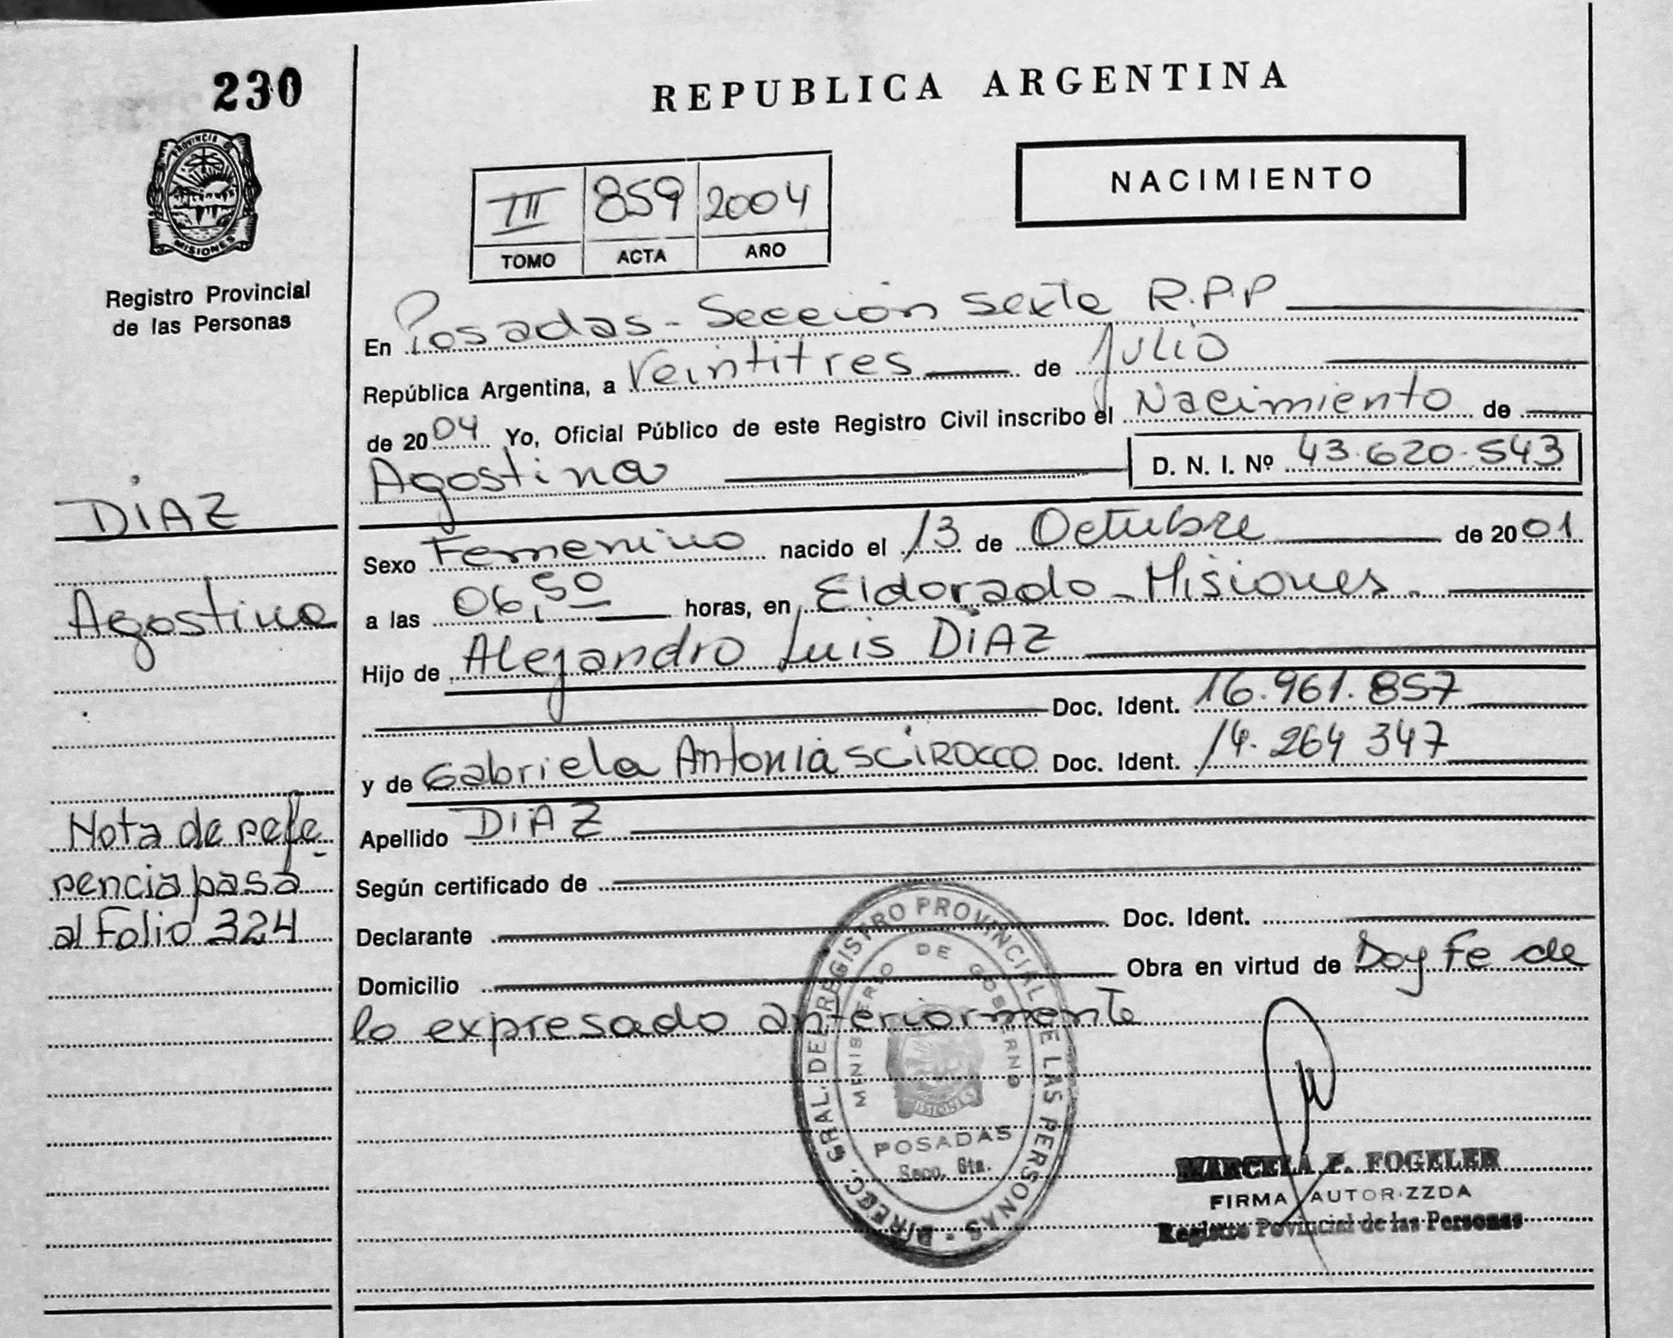 230
PROVINCIA D
MISIONES
Registro Provincial
de las Personas
DIAZ
Agostina
Nota de refe
rencia pasa
al Folio 324
REPUBLICA ARGENTINA
NACIMIENTO
III 859 2004
TOMO ACTA AÑO
En Posadas - Sección Sexta R.P.P
República Argentina, a Veintitres de Julio
de 2004 Yo, Oficial Público de este Registro Civil inscribo el Nacimiento de
Agostina D. N. I. Nº 43.620.543
Sexo Femenino nacido el 13 de Octubre de 2001
a las 06,50 horas, en Eldorado - Misiones.
Hijo de Alejandro Luis DIAZ
Doc. Ident. 16.961.857
y de Gabriela Antonia SCIROCCO Doc. Ident. 14.264 347
Apellido DIAZ
Según certificado de
Declarante Doc. Ident.
Domicilio Obra en virtud de Doy Fe de
lo expresado anteriormente
DIRECC. GRAL. DEL REGISTRO PROVINCIAL DE LAS PERSONAS
MINISTERIO DE GOBIERNO
MISIONES
POSADAS
Secc. 6ta.
MARCELA P. FOGELER
FIRMA AUTORIZZDA
Registro Povincial de las Personas